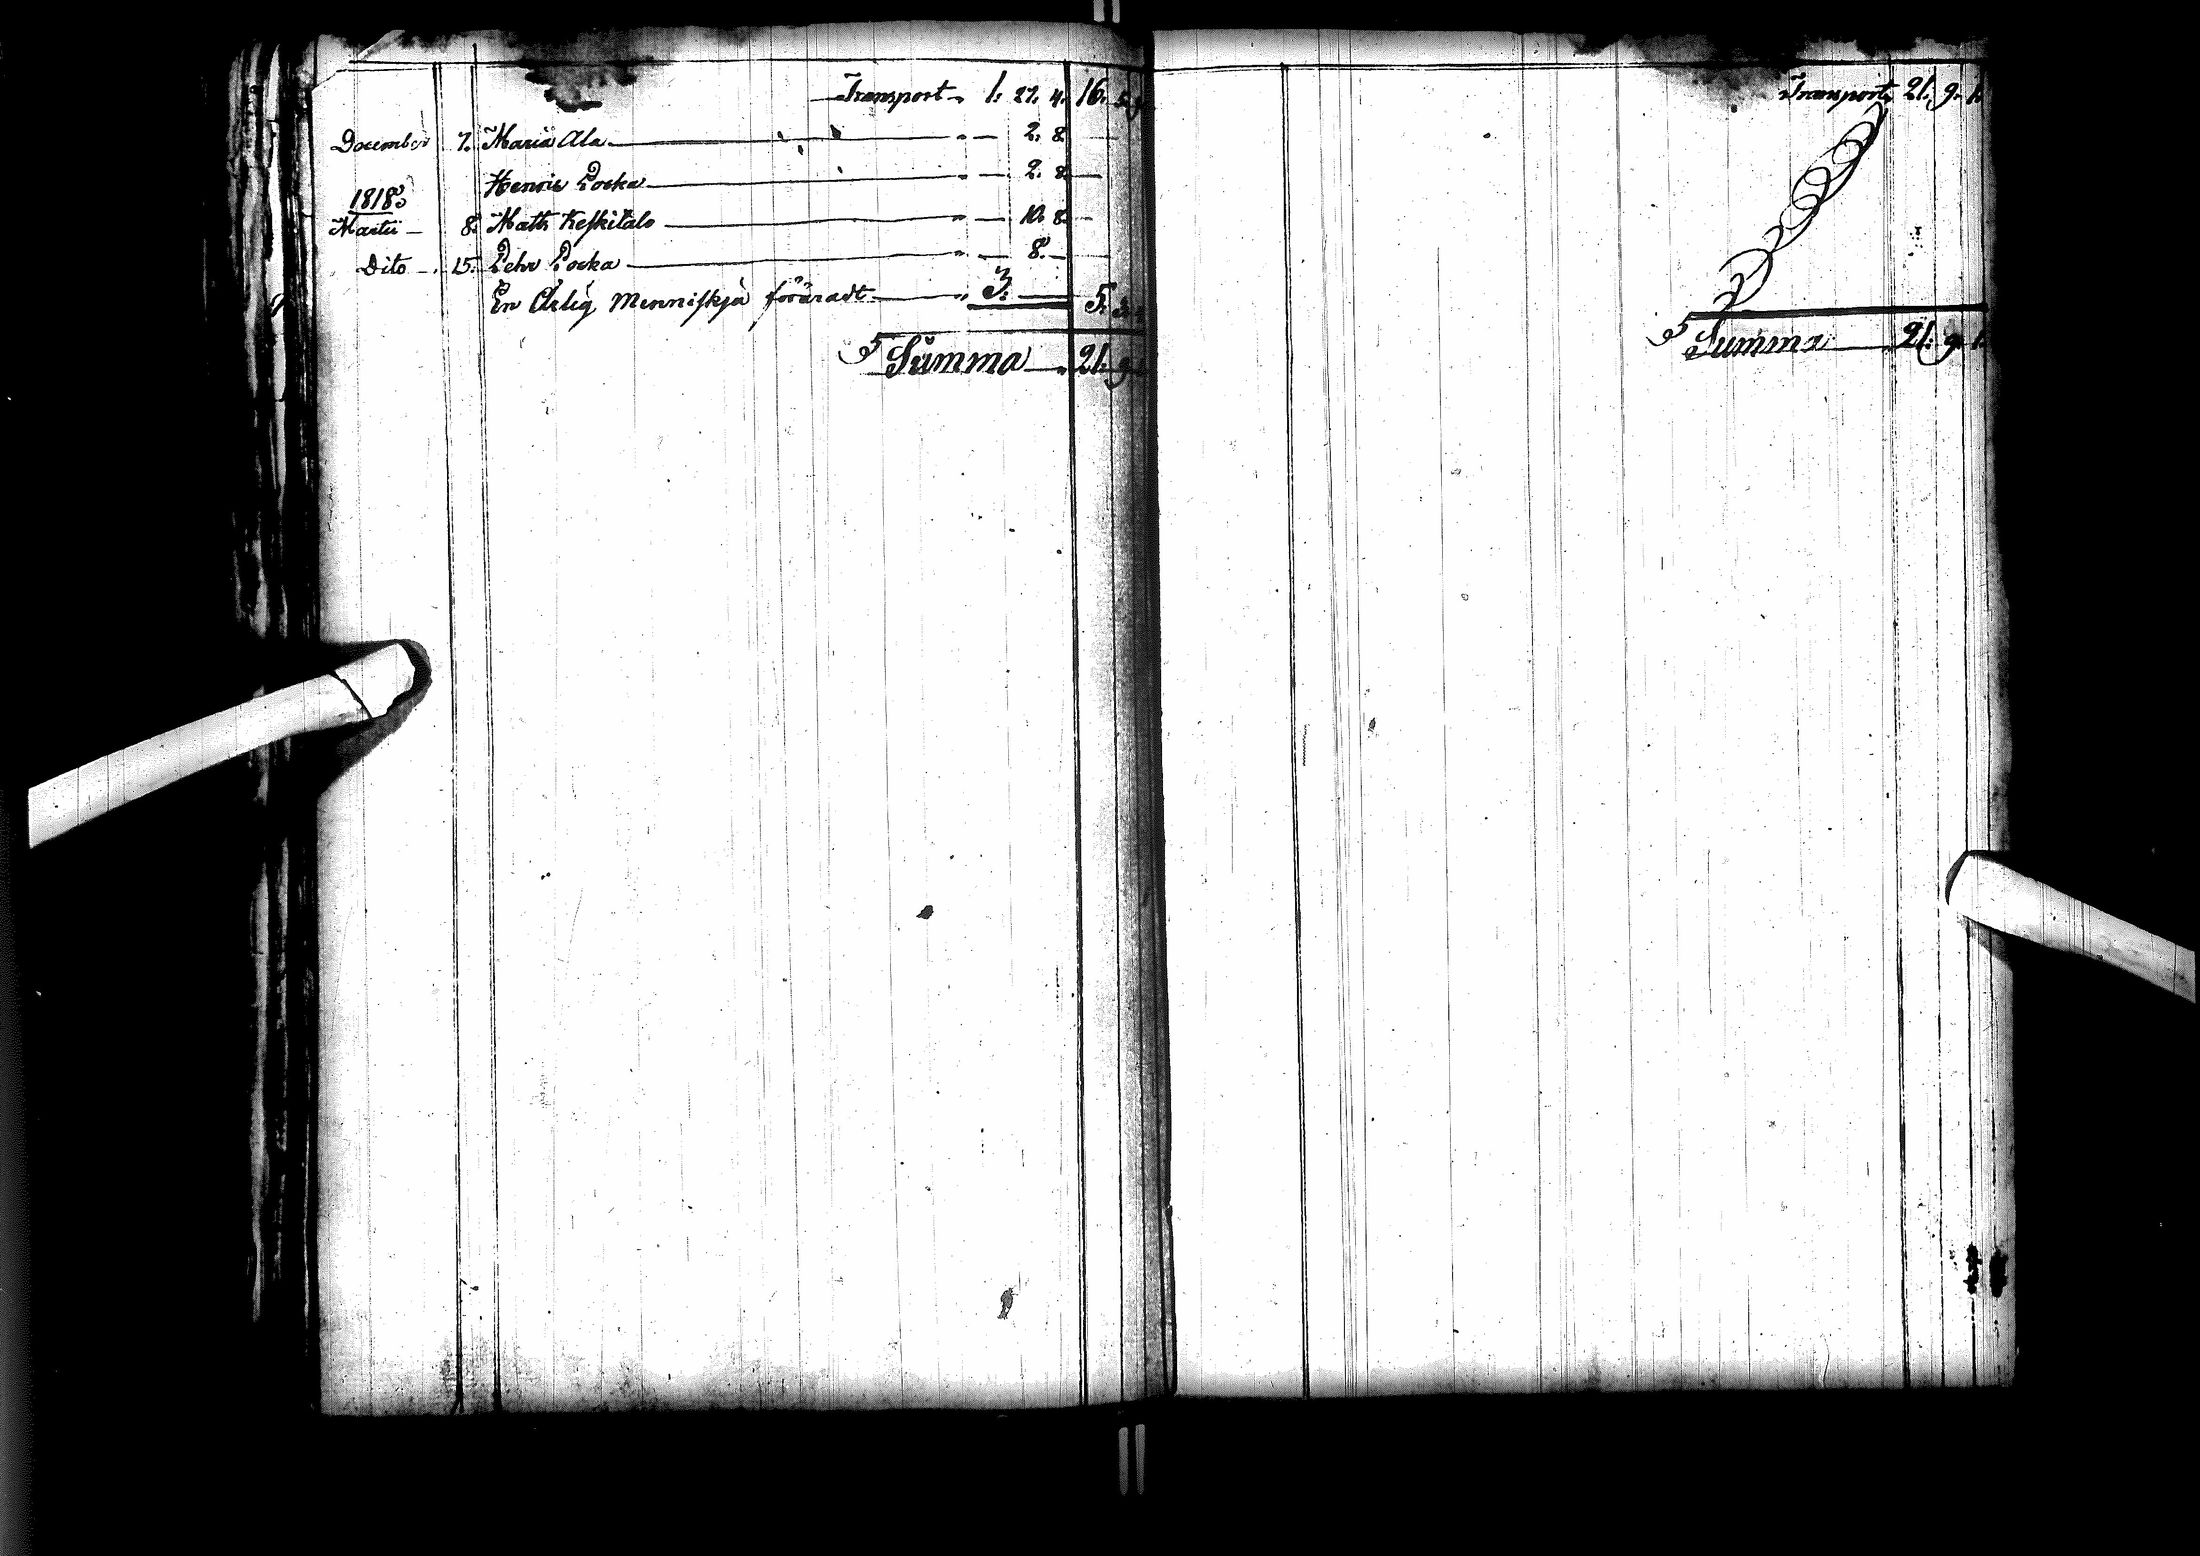 Transport 1. 27. 4. 16. 5. 9
December 7. Maria Ala — 2. 8.
Henric Pocka — 2. 8.
1818
Martii 8. Math Keskitalo — 10. 8.
Dito 15. Pehr Pocka — 8. —
En Ärlig Menniskja föräradt — 3. — 5. 3.
Summa 21. 9.
Transport 21. 9. 1.
Summa 21. 9. 1.